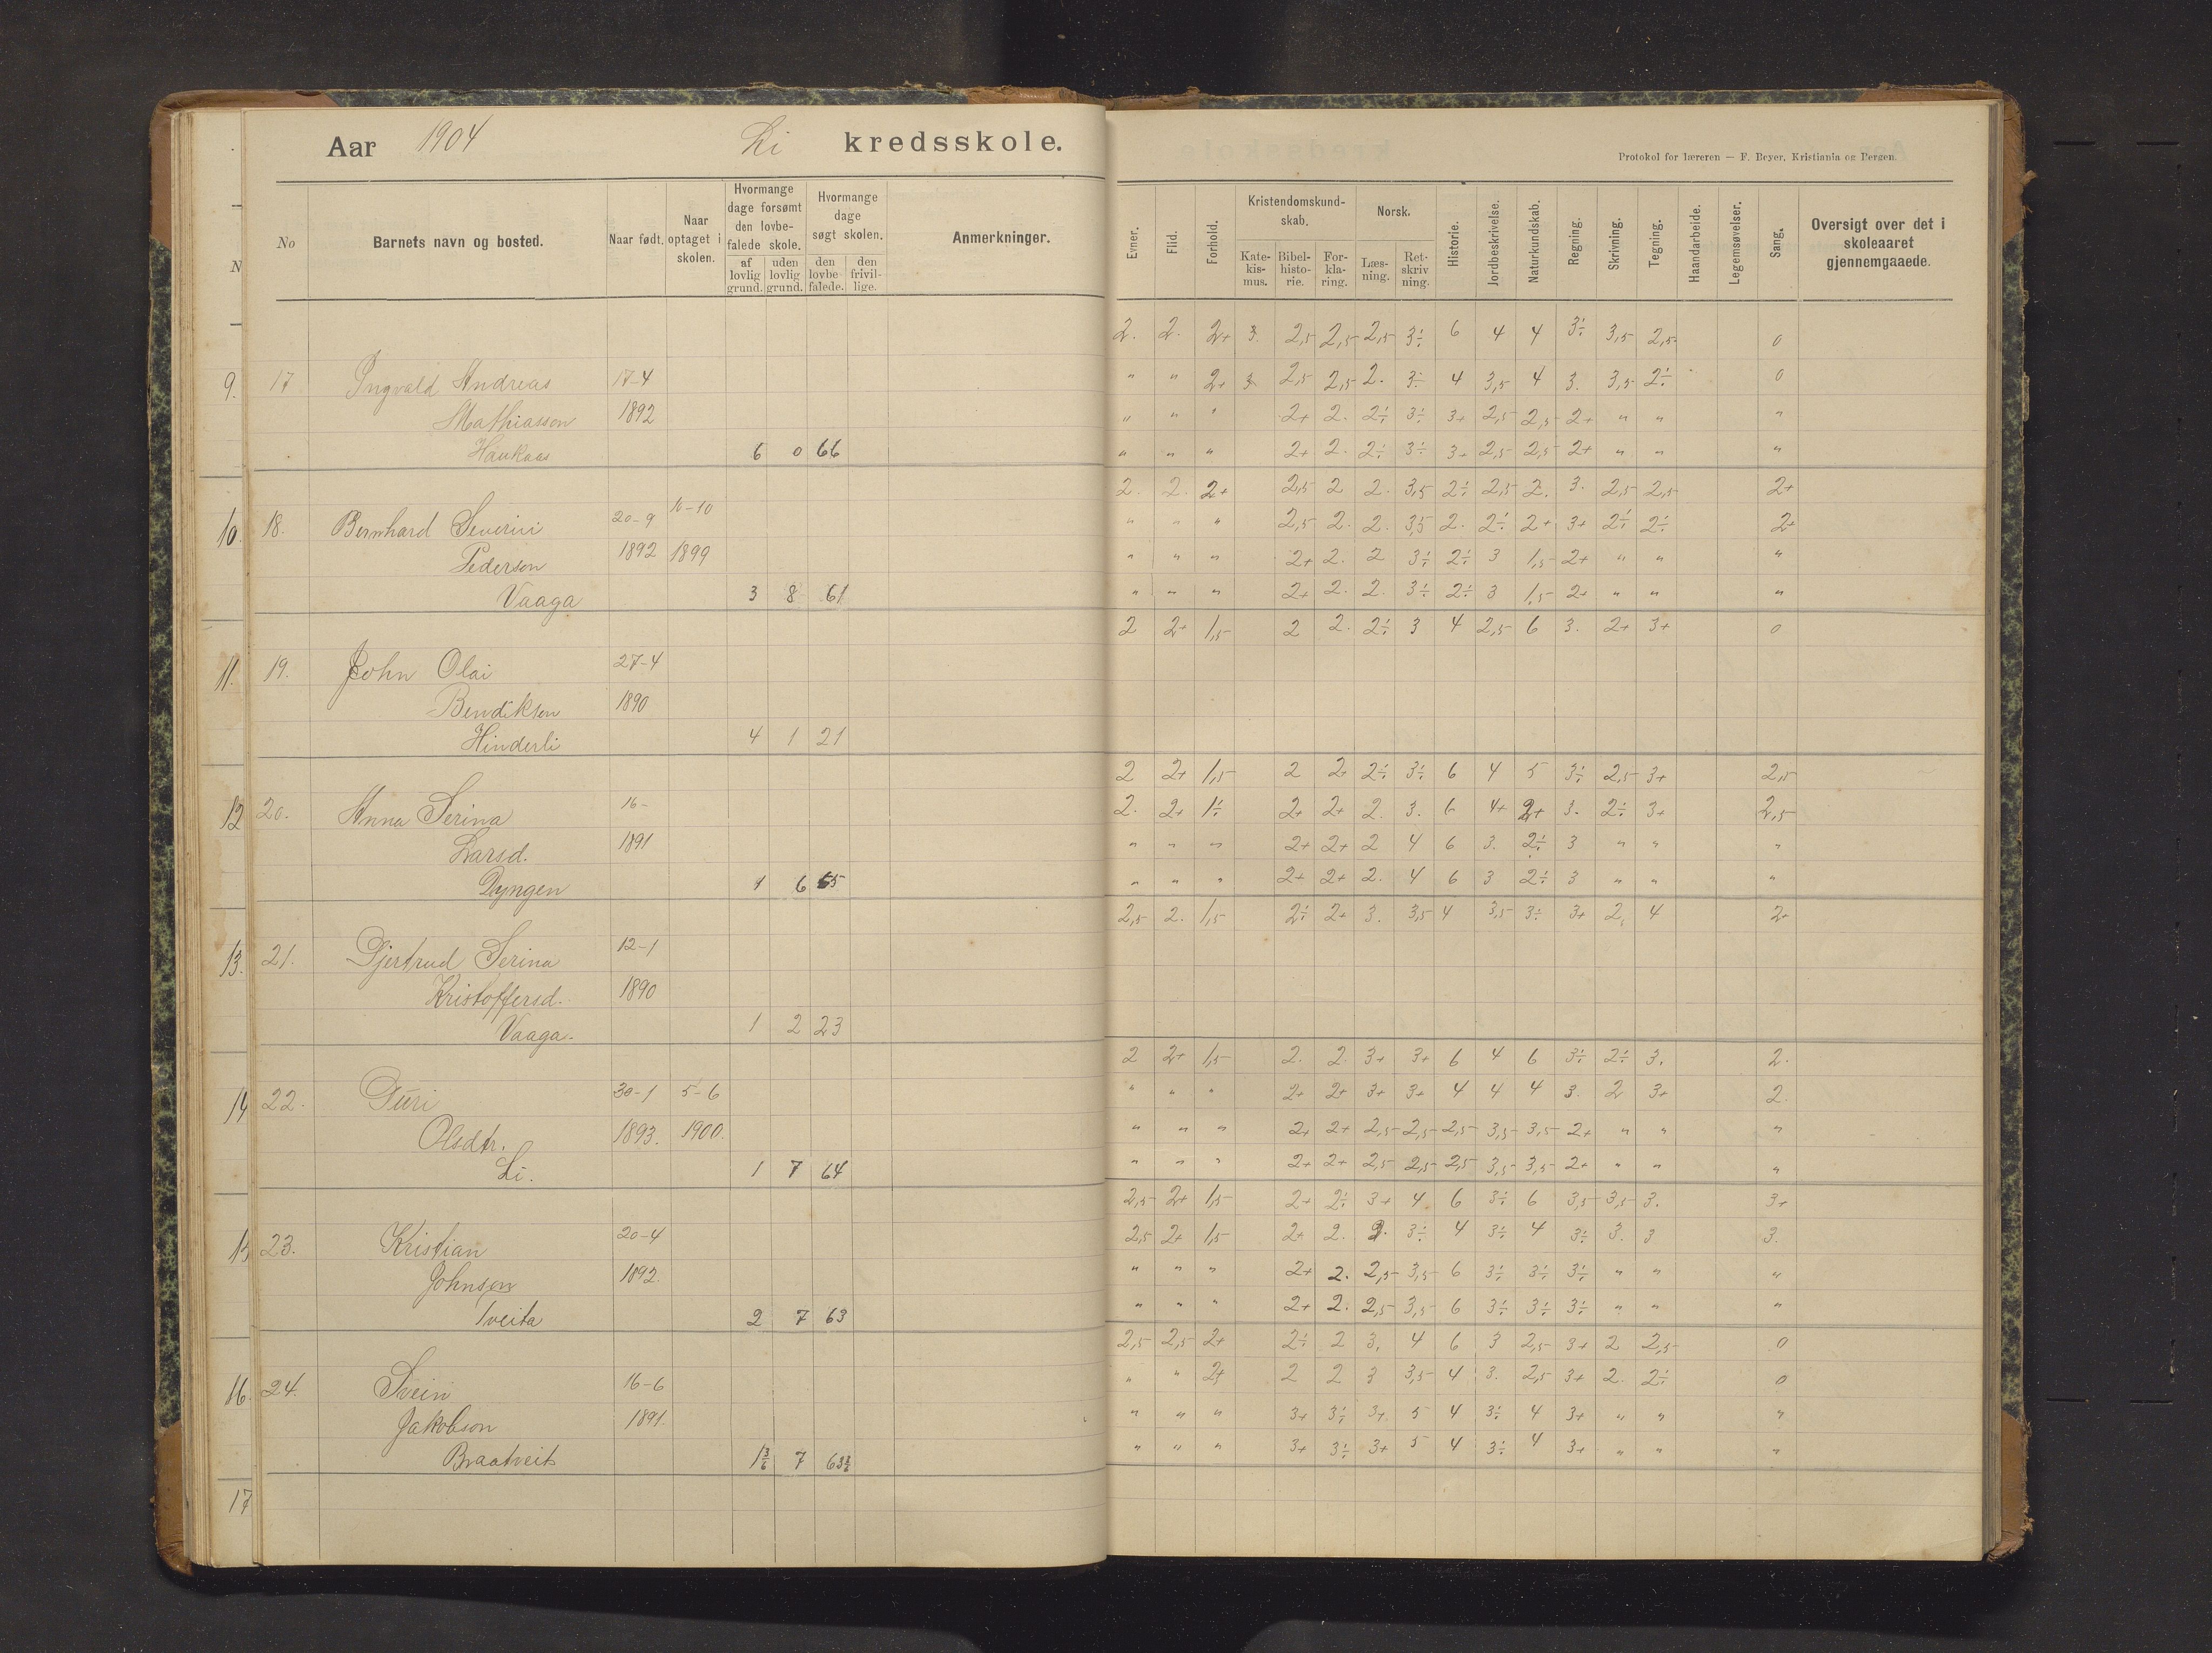 Aar 1904 Li kredsskole.
Protokol for læreren — F. Beyer, Kristiania og Bergen.
No
Barnets navn og bosted.
Naar født.
Naar optaget i skolen.
Hvormange dage forsømt den lovbefalede skole.
af lovlig grund.
uden lovlig grund.
Hvormange dage søgt skolen.
den lovbefalede.
den frivillige.
Anmerkninger.
Evner.
Flid.
Forhold.
Kristendomskundskab.
Katekismus.
Bibelhistorie.
Forklaring.
Norsk.
Læsning.
Retskrivning.
Historie.
Jordbeskrivelse.
Naturkundskab.
Regning.
Skrivning.
Tegning.
Haandarbeide.
Legemsøvelser.
Sang.
Oversigt over det i skoleaaret gjennemgaaede.
2. 2. 2+ 3. 2,5 2,5 2,5 3÷ 6 4 4 3÷ 3,5 2,5 0
9. 17 Ingvald Andreas 17-4
" " 2+ 3 2,5 2,5 2. 3÷ 4 3,5 4 3. 3,5 2÷ 0
Mathiasson 1892
" " " 2+ 2. 2÷ 3÷ 3+ 2,5 2,5 2+ " " "
Haukaas 6 0 66
" " " 2+ 2. 2÷ 3÷ 3+ 2,5 2,5 2+ " " "
2. 2. 2+ 2,5 2 2. 3,5 2÷ 2,5 2. 3. 2,5 2,5 2+
10. 18. Bernhard Severin 20-9 16-10
" " " 2,5 2. 2. 3,5 2. 2÷ 2+ 3+ 2÷ 2÷ 2+
Pederson 1892 1899
" " " 2+ 2. 2 3÷ 2÷ 3 1,5 2+ " " "
Vaaga 3 8 61
" " " 2+ 2. 2. 3÷ 2÷ 3 1,5 2+ " " "
2 2+ 1,5 2 2. 2÷ 3 4 2,5 6 3. 2+ 3+ 0
11. 19. John Olai 27-4
Bendiksen 1890
Hinderli 4 1 21
2 2+ 1,5 2 2+ 2÷ 3÷ 6 4 5 3÷ 2,5 3+ 2,5
12 20. Anna Serina 16-
2. 2+ 1÷ 2+ 2+ 2. 3. 6 4+ 2+ 3. 2÷ 3+ 2,5
Larsd. 1891
" " " 2+ 2+ 2 4 6 3. 2÷ 3 " " "
Dyngen 1 6 65
" " " 2+ 2+ 2. 4 6 3 2÷ 3 " " "
2,5 2. 1,5 2÷ 2+ 3. 3,5 4 3,5 3÷ 3+ 2, 4 2+
13. 21. Gjertrud Serina 12-1
Kristoffersd. 1890
Vaaga. 1 2 23
2 2+ 1,5 2. 2. 3+ 3+ 6 4 6 3÷ 2÷ 3. 2.
14 22. Guri 30-1 5-6
" " " 2+ 2+ 3+ 3+ 4 4 4 3. 2 3+ 2.
Olsdtr. 1893. 1900.
" " " 2+ 2+ 2,5 2,5 2,5 3,5 3,5 2+ " " "
Li. 1 7 64
" " " 2+ 2+ 2,5 2,5 2,5 3,5 3,5 2+ " " "
2,5 2+ 1,5 2+ 2÷ 3+ 4 6 3÷ 6 3,5 3,5 3. 3+
15 23. Kristian 20-4
2,5 2+ 1,5 2+ 2. 3÷ 4 3÷ 4 3÷ 3. 3 3.
Johnson 1892.
" " " 2+ 2. 2,5 3,5 6 3÷ 3÷ 3÷ " " "
Tveita 2 7 63
" " " 2+ 2. 2,5 3,5 6 3÷ 3÷ 3÷ " " "
2,5 2,5 2+ 2÷ 2 3. 4 6 3 2,5 3+ 2 2,5 0
16. 24. Svein 16-6
" " 2+ 2 2 3 3,5 4 3. 2,5 3+ 2. 2÷ 0
Jakobson 1891.
" " " 3+ 3÷ 3+ 5 4 3÷ 4 3+ " " "
Braatveit 1 3/6 7 63 3/6
" " " 3+ 3÷ 3+ 5 4 3÷ 4 3+ " " "
17